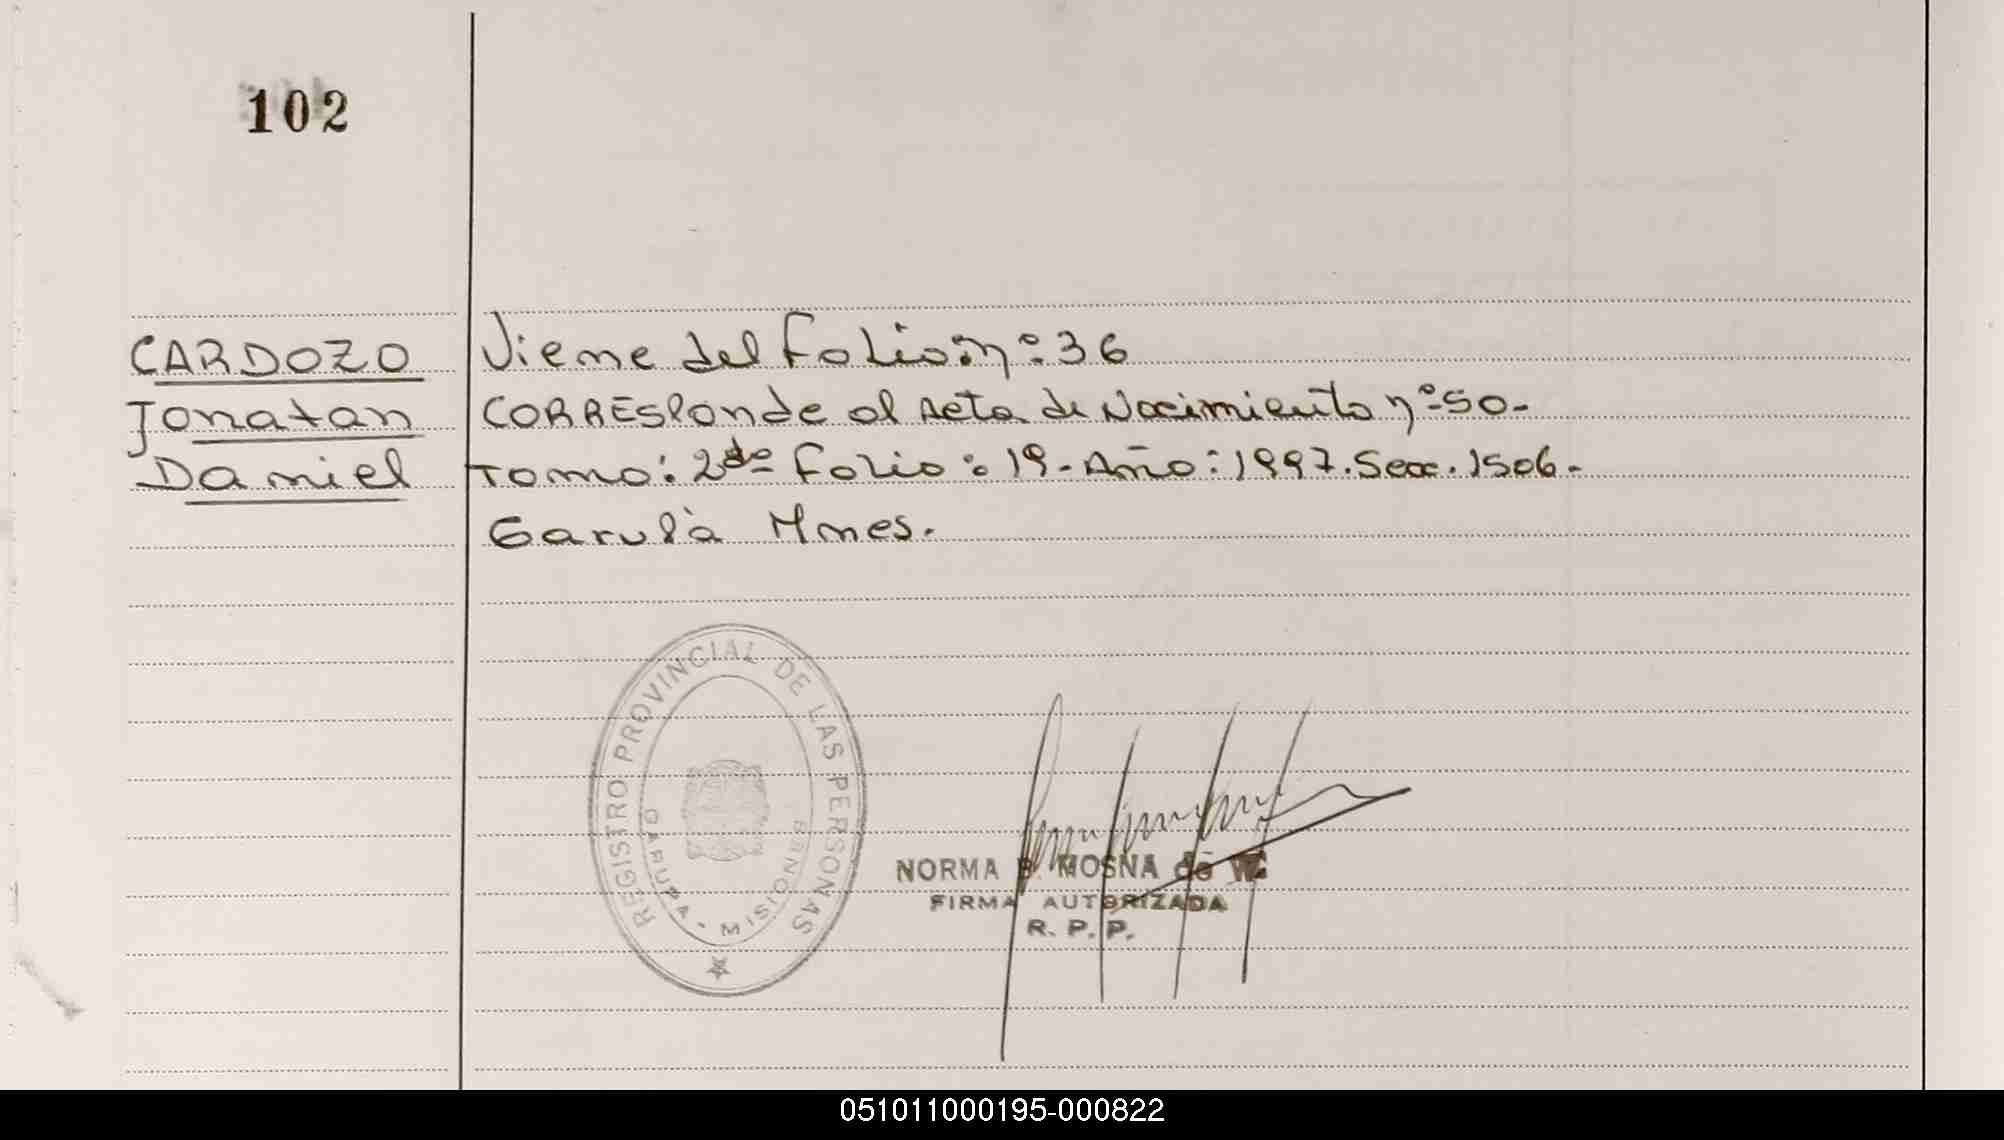 102
CARDOZO
Jonatan
Daniel
Viene del Folio: nº: 36
CORRESPonde al Acta de Nacimiento nº 50-
Tomo: 2do Folio: 19- Año: 1997. Secc. 1506-
Garupà Mnes.
REGISTRO PROVINCIAL DE LAS PERSONAS
GARUPA - MISIONES
NORMA B. MOSNA de
FIRMA AUTORIZADA
R. P. P.
051011000195-000822